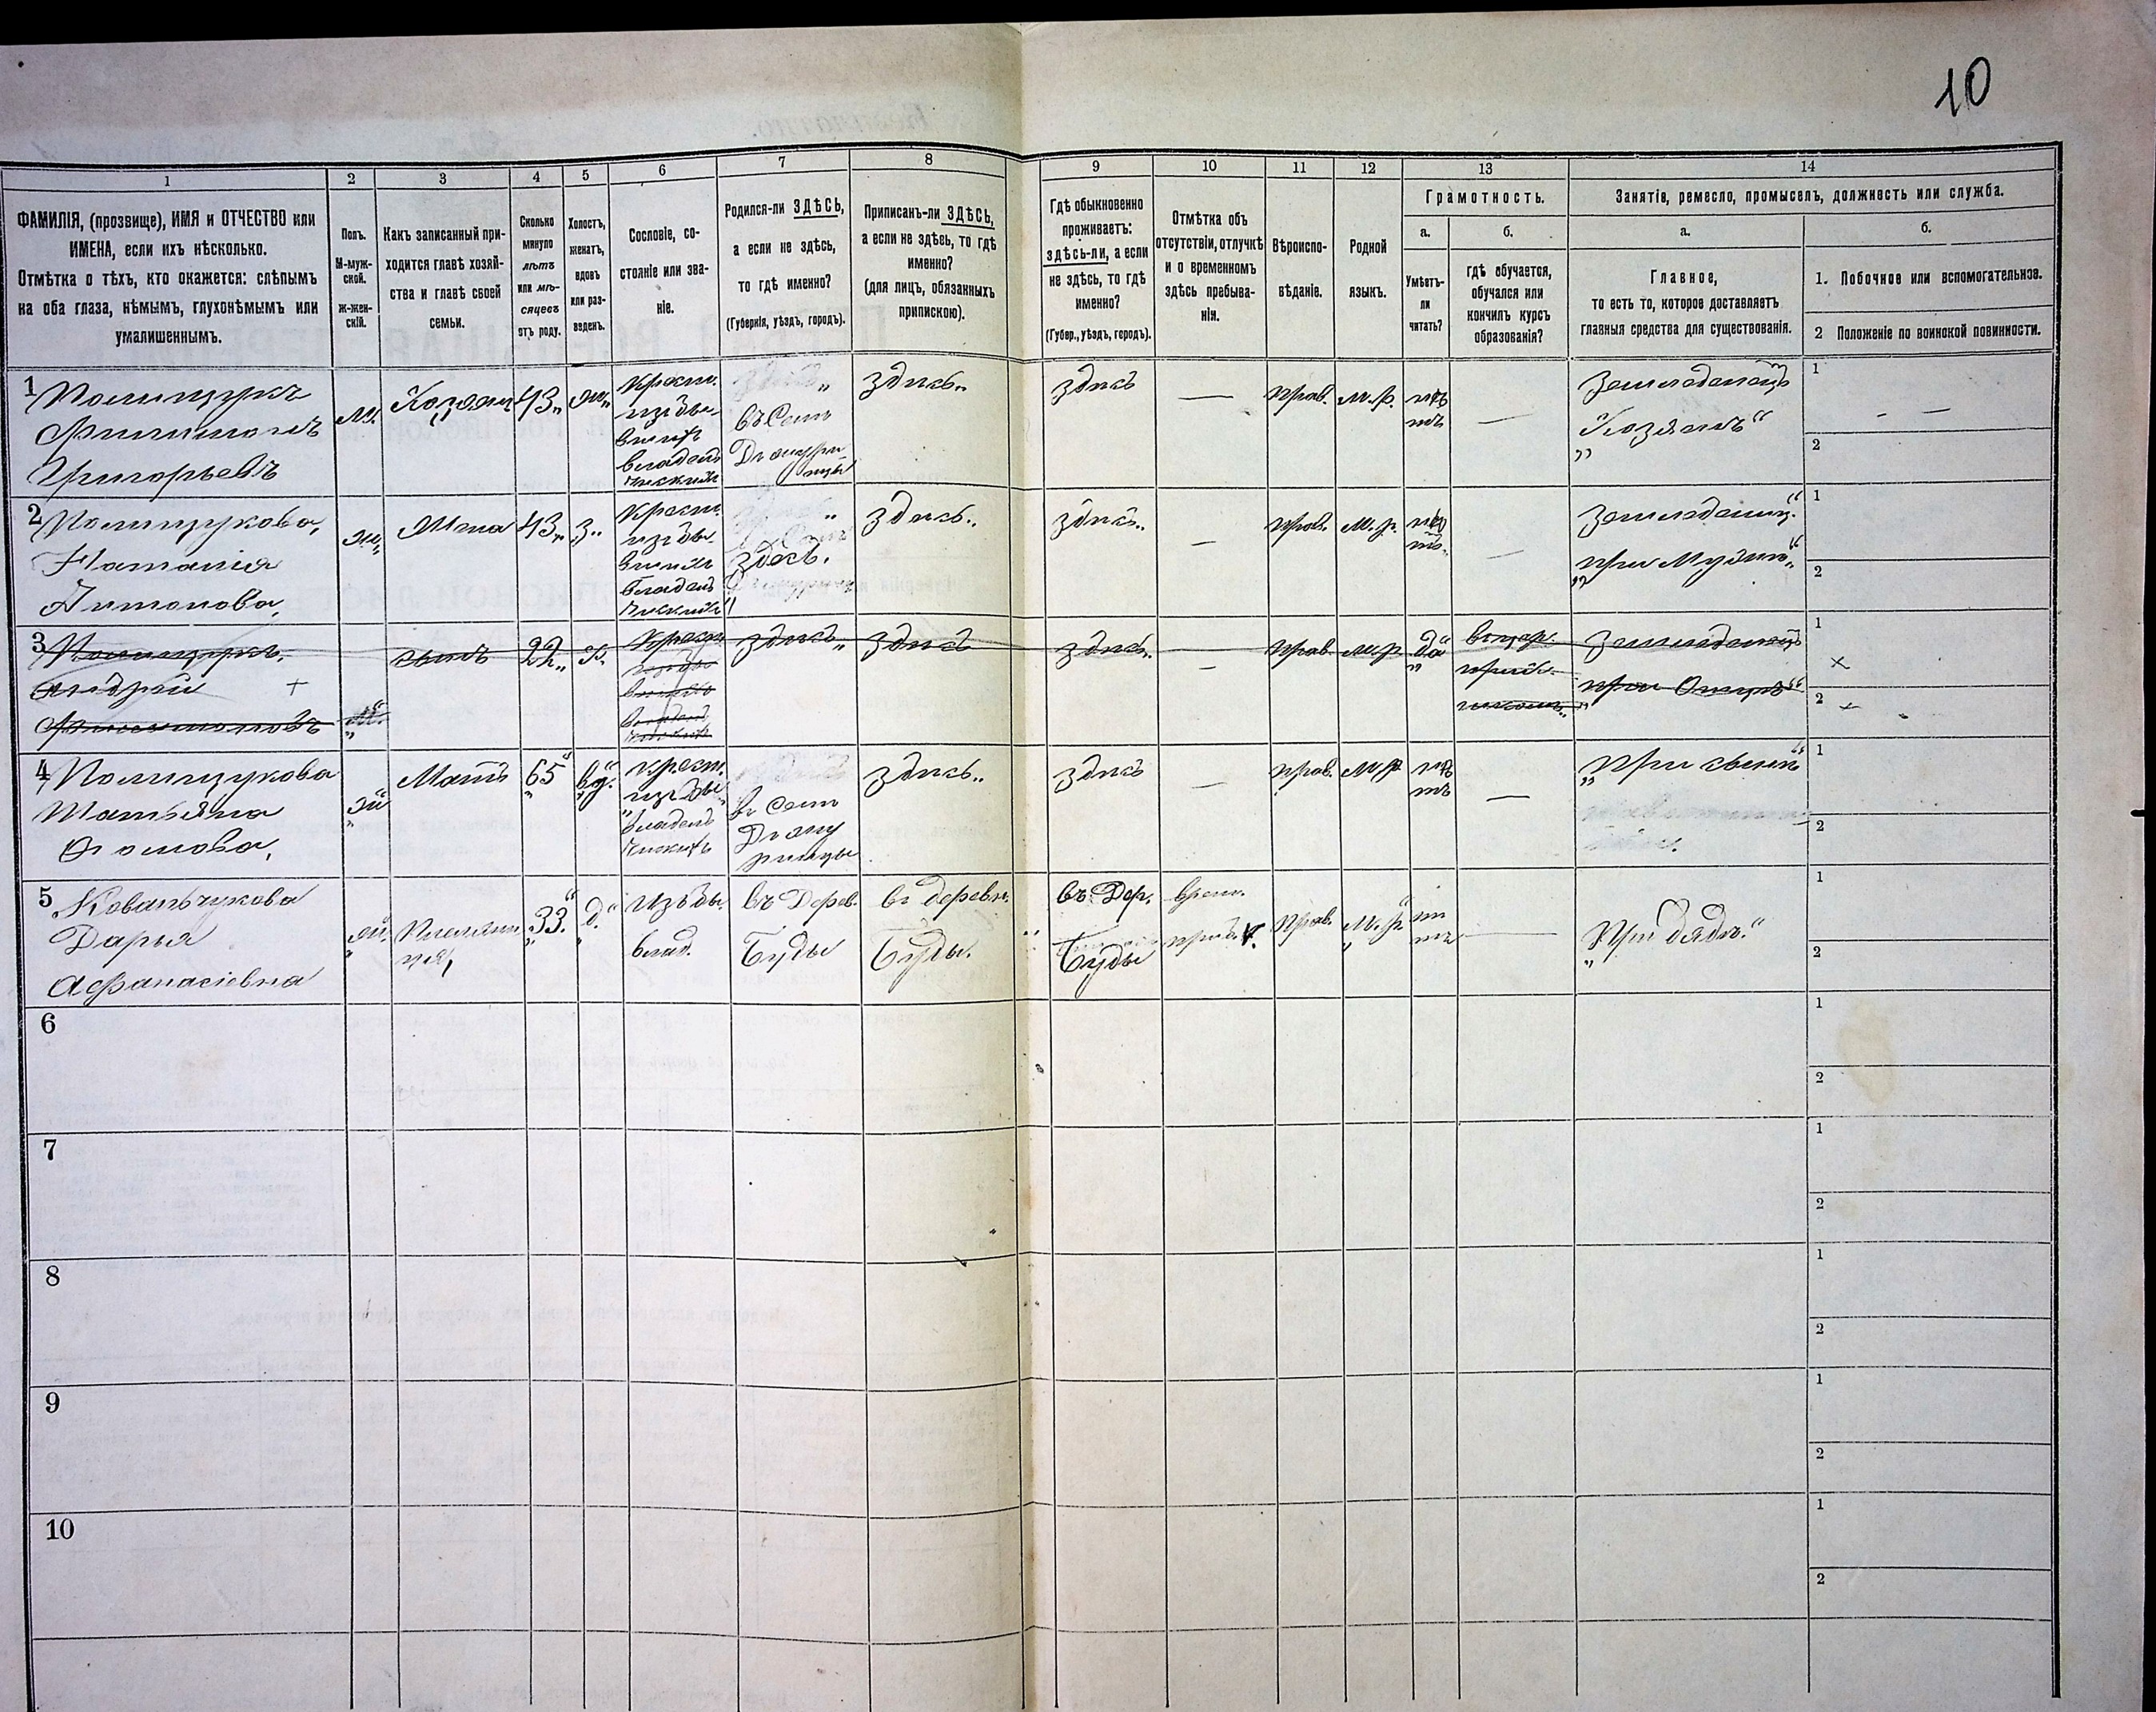 10
1
2
3
4
5
6
7
8
9
10
11
12
13
14
ФАМИЛІЯ, (прозвище), ИМЯ и ОТЧЕСТВО или
ИМЕНА, если ихъ нѣсколько.
Отмѣтка о тѣхъ, кто окажется: слѣпымъ
на оба глаза, нѣмымъ, глухонѣмымъ или
умалишеннымъ.
Полъ.
М-муж-
ской.
ж-жен-
скій.
Какъ записанный при-
ходится главѣ хозяй-
ства и главѣ своей
семьи.
Сколько
минуло
лѣтъ
или мѣ-
сяцевъ
отъ роду.
Холостъ,
женатъ,
вдовъ
или раз-
веденъ.
Сословіе, со-
стояніе или зва-
ніе.
Родился-ли ЗДѢСЬ,
а если не здѣсь,
то гдѣ именно?
(Губернія, уѣздъ, городъ).
Приписанъ-ли ЗДѢСЬ,
а если не здѣсь, то гдѣ
именно?
(для лицъ, обязанныхъ
припискою).
Гдѣ обыкновенно
проживаетъ:
здѣсь-ли, а если
не здѣсь, то гдѣ
именно?
(Губер., уѣздъ, городъ).
Отмѣтка объ
отсутствіи, отлучкѣ
и о временномъ
здѣсь пребыва-
ніи.
Вѣроиспо-
вѣданіе.
Родной
языкъ.
Грамотность.
а.
Умѣетъ-
ли
читать?
б.
гдѣ обучается,
обучался или
кончилъ курсъ
образованія?
Занятія, ремесло, промыселъ, должность или служба.
а.
Главное,
то есть то, которое доставляетъ
главныя средства для существованія.
б.
1. Побочное или вспомогательное.
2 Положеніе по воинской повинности.
1 Полищукъ
Филимонъ
Григорьевъ
м.
Хозяинъ
43
ж.
Крест.
изъ бы.
владѣль
ческихъ
въ Селѣ
здѣсь
здѣсь
—
прав.
м.р.
нѣ
тъ
—
Земледѣлецъ
„Хозяинъ“
1
2
2 Полищукова,
Наталія
Антонова,
ж.
Жена
43
з.
Крест.
изъ бы.
владѣль
ческихъ
здѣсь.
здѣсь
здѣсь
—
прав.
м.р.
нѣ
тъ
—
Земледѣлец.
„при Мужѣ“
1
2
3 Полищукъ
Андрей +
Филимоновъ
м.
сынъ
22
х.
Крест.
здѣсь
здѣсь
здѣсь
—
прав.
м.р.
да
школѣ
Земледѣлецъ
при Отцѣ“
1
2
4 Полищукова
Татьяна
ж.
Мать
65
вд.
крест.
изъ бы.
владѣль
въ Селѣ
здѣсь
здѣсь
—
прав.
м.р.
нѣ
тъ
—
„При сынѣ“
1
2
5 Ковальчукова
Дарья
Афанасіевна
ж.
Племянн
ица
33.
д.
изъ бы.
влад.
въ Дерев.
Буды
въ деревн.
Буды.
въ Дер.
Буды
врем.
прав.
м.р.
нѣ
тъ
—
„При дядѣ.“
1
2
6
1
2
7
1
2
8
1
2
9
1
2
10
1
2